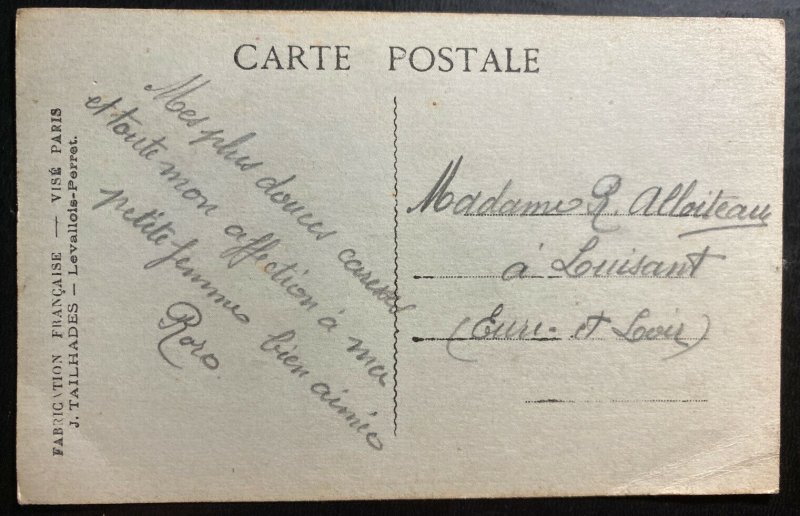 CARTE POSTALE
FABRICATION FRANÇAISE — VISÉ PARIS
J. TAILHADES — Levallois-Perret.
Mes plus douces caresses
et toute mon affection à ma
petite femme bien aimée
Roro
Madame R. Alloiteau
à Luisant
(Eure-et Loir)